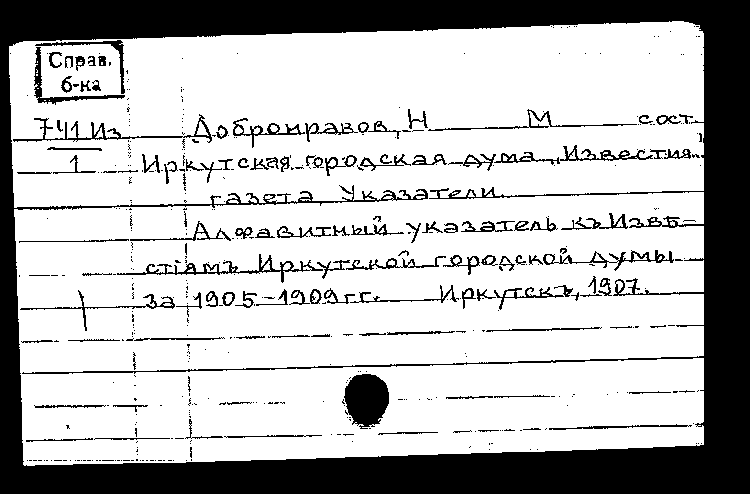 Справ.
б-ка
741 Из
1
Добронравов, Н М сост.
Иркутская городская дума „Известия"
газета, Указатели.
Алфавитный указатель къ Извѣ-
стіямъ Иркутской городской думы
за 1905-1909 гг. Иркутскъ, 1907.